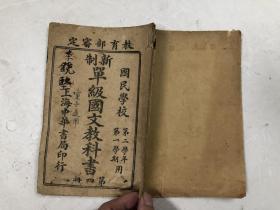 教育部審定
國民學校
第二學年
第一學期用
新制
單級國文教科書
第四冊
上海中華書局印行